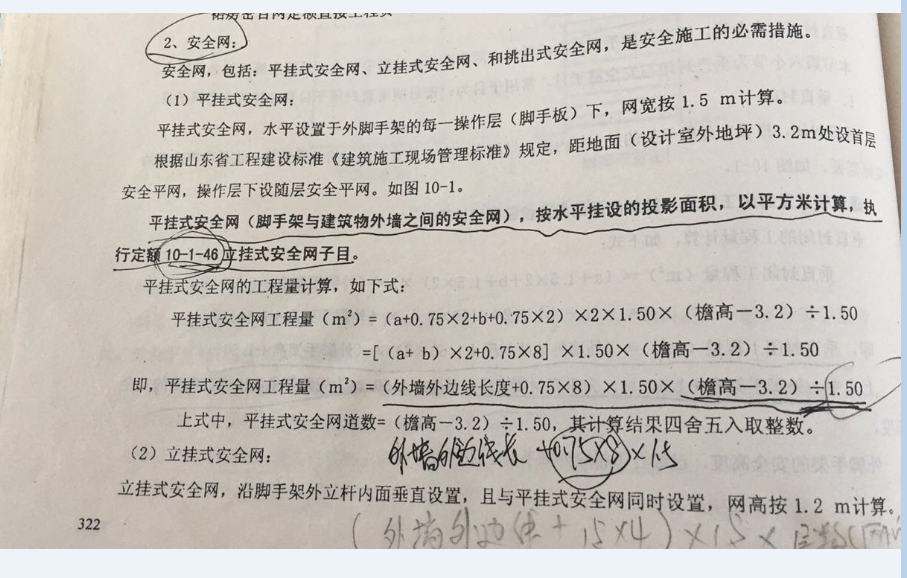 2、安全网：
安全网，包括：平挂式安全网、立挂式安全网、和挑出式安全网，是安全施工的必需措施。
（1）平挂式安全网：
平挂式安全网，水平设置于外脚手架的每一操作层（脚手板）下，网宽按 1.5 m计算。
根据山东省工程建设标准《建筑施工现场管理标准》规定，距地面（设计室外地坪）3.2m处设首层
安全平网，操作层下设随层安全平网。如图 10-1。
平挂式安全网（脚手架与建筑物外墙之间的安全网），按水平挂设的投影面积，以平方米计算，执
行定额 10-1-46 立挂式安全网子目。
平挂式安全网的工程量计算，如下式：
平挂式安全网工程量（m²）=（a+0.75×2+b+0.75×2）×2×1.50×（檐高－3.2）÷1.50
=[（a+ b）×2+0.75×8] ×1.50×（檐高－3.2）÷1.50
即，平挂式安全网工程量（m²）=（外墙外边线长度+0.75×8）×1.50×（檐高－3.2）÷1.50
上式中，平挂式安全网道数=（檐高－3.2）÷1.50，其计算结果四舍五入取整数。
（2）立挂式安全网：
外墙外边线长 +0.75×8)×1.5
立挂式安全网，沿脚手架外立杆内面垂直设置，且与平挂式安全网同时设置，网高按 1.2 m计算。
322
(外墙外边线 + 1.5×4) ×1.5×